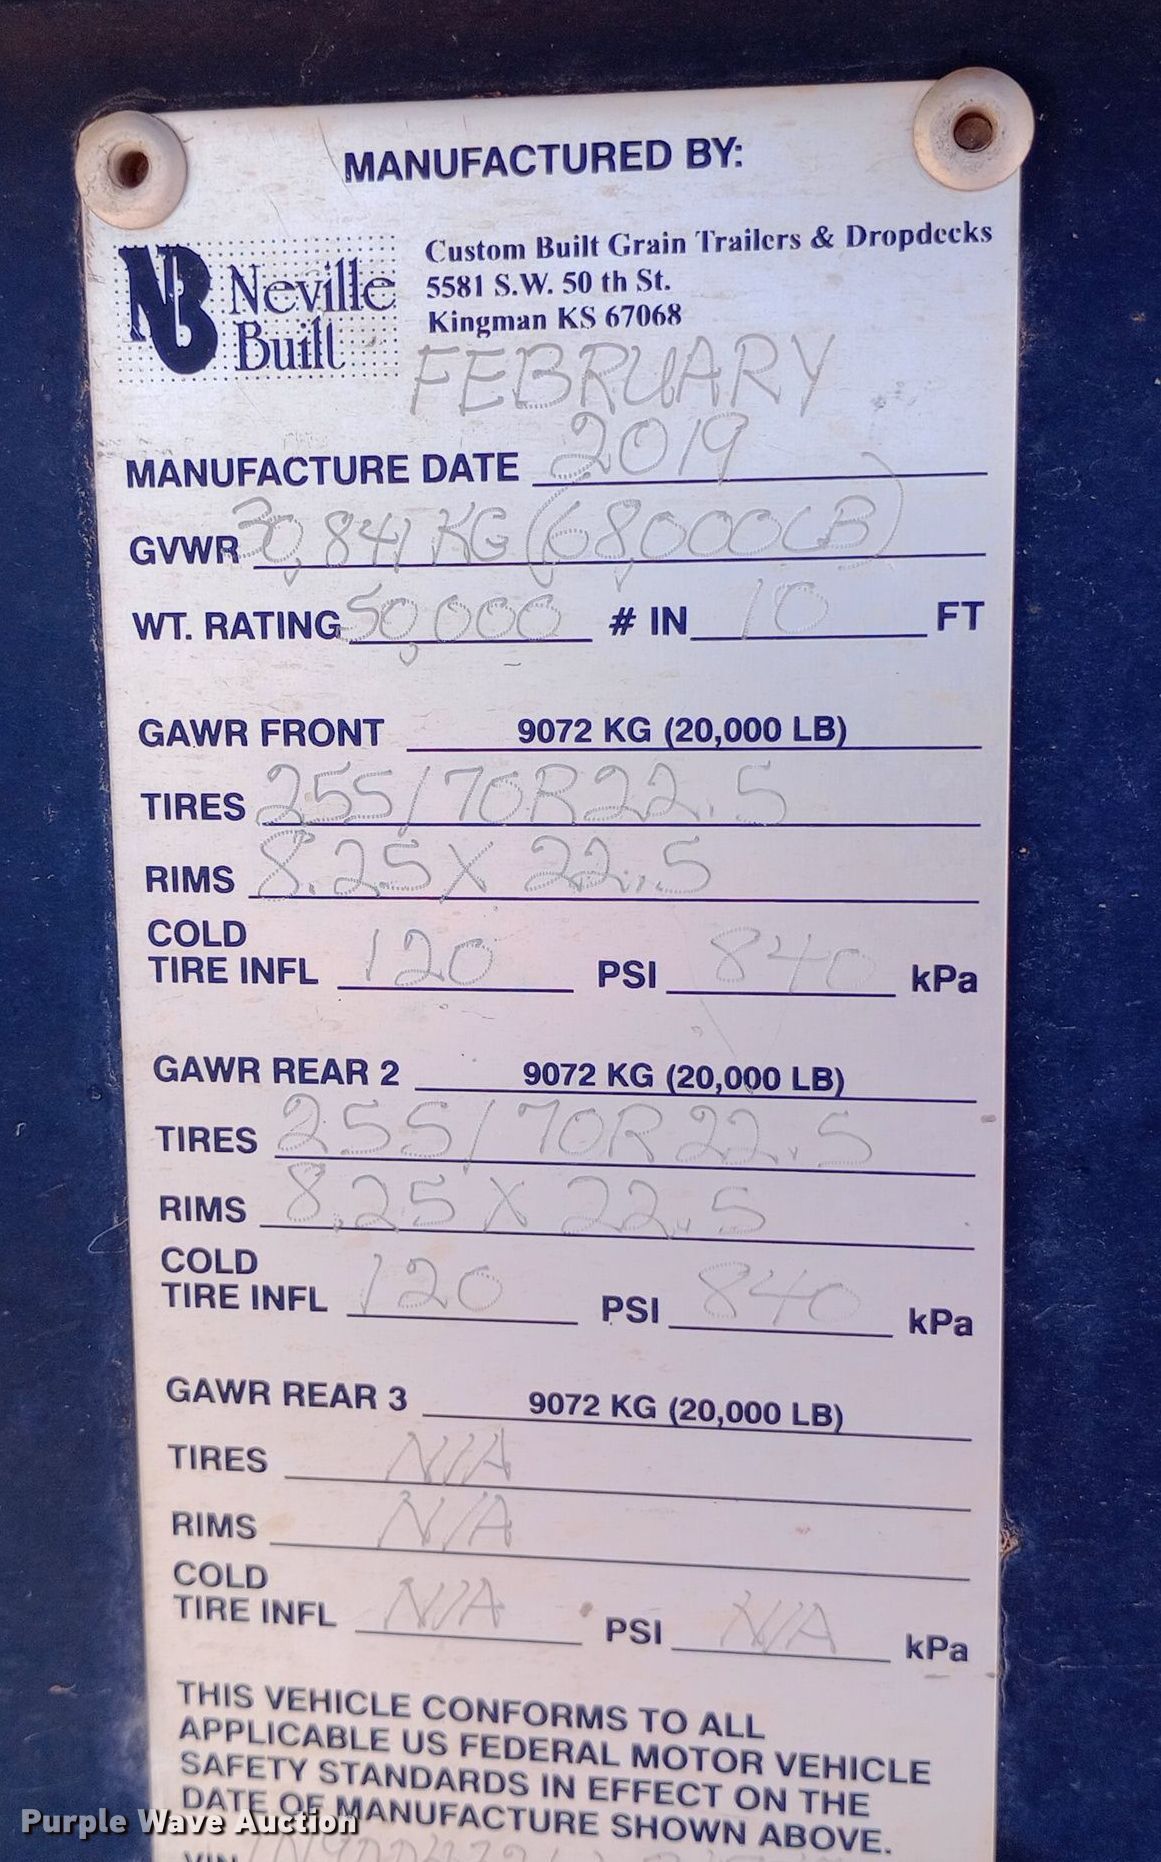 MANUFACTURED BY:
NB Neville Built
Custom Built Grain Trailers & Dropdecks
5581 S.W. 50 th St.
Kingman KS 67068
FEBRUARY
MANUFACTURE DATE 2019
GVWR 30,841 KG (68,000LB)
WT. RATING 50,000 # IN 10 FT
GAWR FRONT 9072 KG (20,000 LB)
TIRES 255/70R22.5
RIMS 8.25 X 22.5
COLD
TIRE INFL 120 PSI 840 kPa
GAWR REAR 2 9072 KG (20,000 LB)
TIRES 255/70R22.5
RIMS 8.25 X 22.5
COLD
TIRE INFL 120 PSI 840 kPa
GAWR REAR 3 9072 KG (20,000 LB)
TIRES N/A
RIMS N/A
COLD
TIRE INFL N/A PSI N/A kPa
THIS VEHICLE CONFORMS TO ALL
APPLICABLE US FEDERAL MOTOR VEHICLE
SAFETY STANDARDS IN EFFECT ON THE
DATE OF MANUFACTURE SHOWN ABOVE.
VIN
Purple Wave Auction